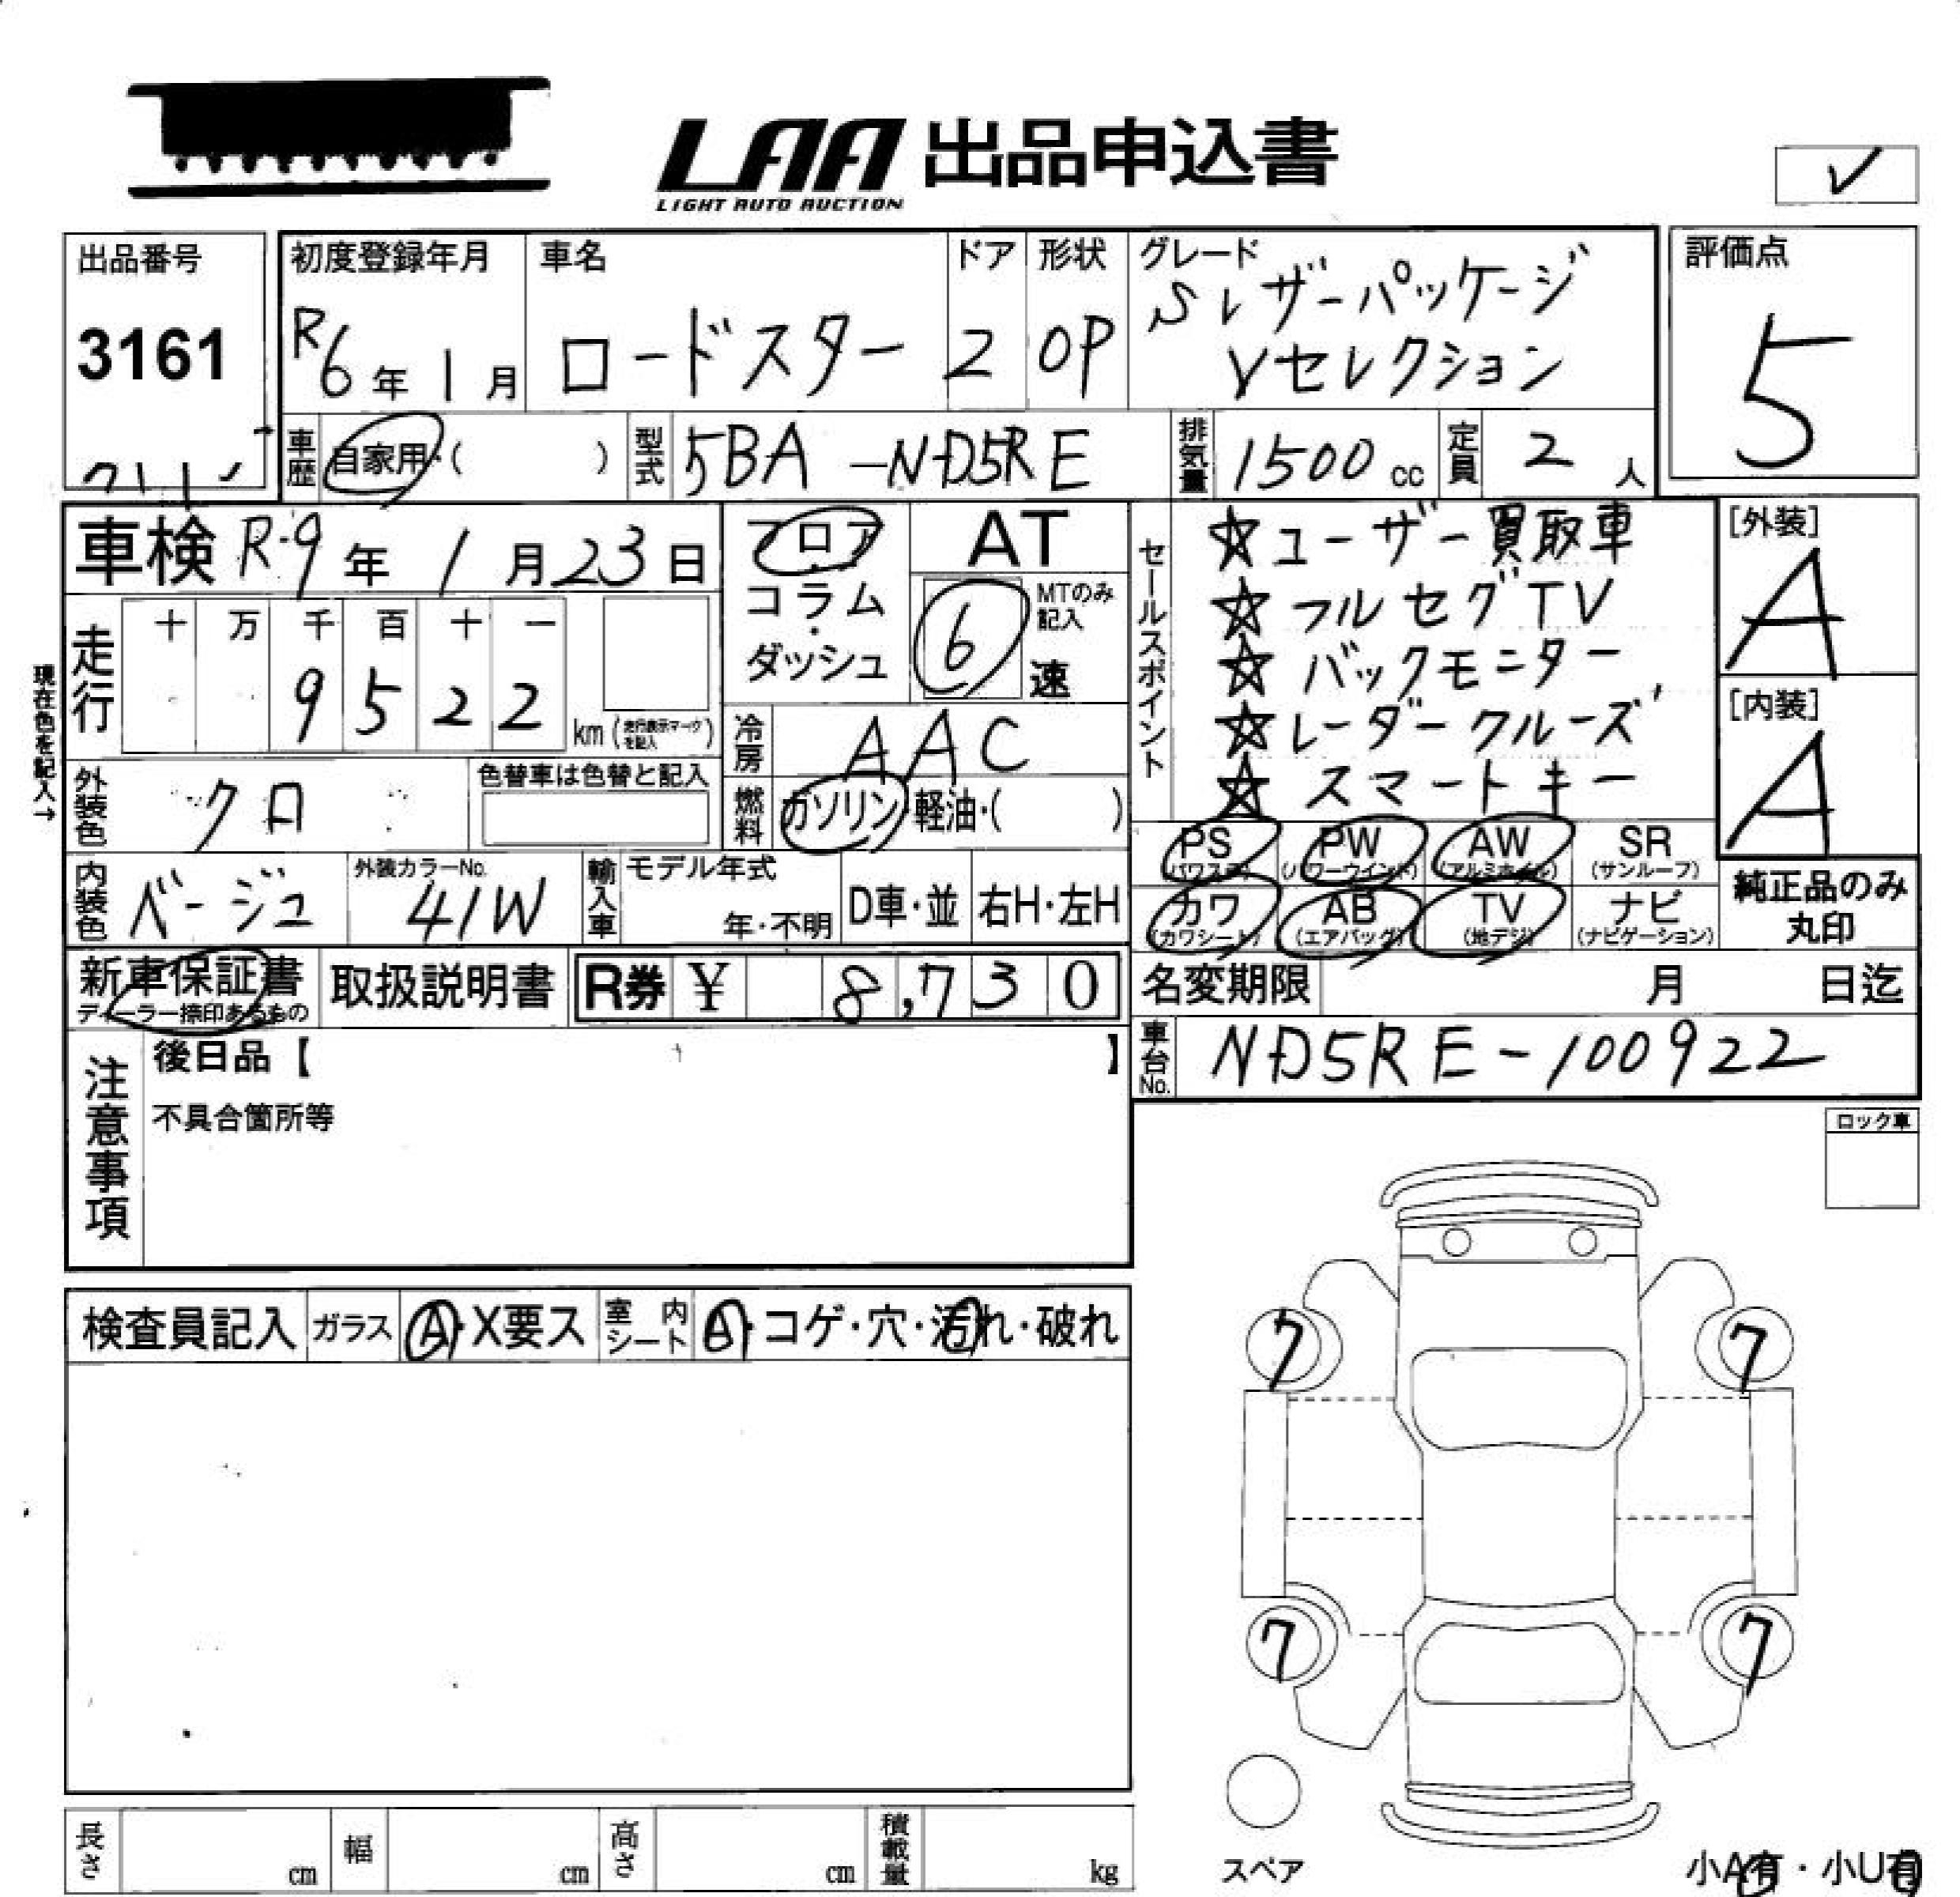 LAA 出品申込書
LIGHT AUTO AUCTION
✓
出品番号
3161
初度登録年月
R6年1月
車名
ロードスター
ドア
2
形状
OP
グレード
Sレザーパッケージ
Vセレクション
評価点
5
車歴
自家用・( )
型式
5BA-ND5RE
排気量
1500cc
定員
2人
車検 R.9年1月23日
フロア・コラム・ダッシュ
AT
6速
MTのみ記入
セールスポイント
☆ユーザー買取車
☆フルセグTV
☆バックモニター
☆レーダークルーズ
☆スマートキー
[外装]
A
[内装]
A
現在色を記入→
走行
十 万 千 百 十 一
9 5 2 2
km(走行表示マークを記入)
冷房
AAC
外装色
クロ
色替車は色替と記入
燃料
ガソリン・軽油・( )
PS (パワステ)
PW (パワーウインド)
AW (アルミホイル)
SR (サンルーフ)
カワ (カワシート)
AB (エアバッグ)
TV (地デジ)
ナビ (ナビゲーション)
純正品のみ
丸印
内装色
ベージュ
外装カラーNo.
41W
輸入車
モデル年式
年・不明
D車・並
右H・左H
新車保証書
ディーラー捺印あるもの
取扱説明書
R券 ¥ 8,730
名変期限 月 日迄
車台No.
ND5RE-100922
注意事項
後日品【 】
不具合箇所等
ロック車
検査員記入
ガラス
A・X要ス
室内シート
A・コゲ・穴・汚れ・破れ
7
7
7
7
スペア
長さ cm
幅 cm
高さ cm
積載量 kg
小A有・小U有